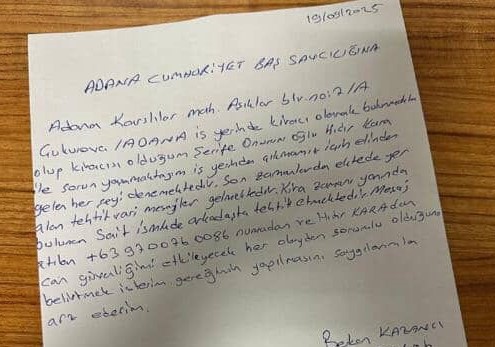 19/09/2025
ADANA CUMHURİYET BAŞ SAVCILIĞINA
Adana Karslılar mah. Aşıklar blv. no: 7/A
Çukurova / ADANA iş yerinde kiracı olarak bulunmakta
olup kiracısı olduğum Şerife Onurun oğlu Hıdır Kara
ile sorun yaşamaktayım iş yerinden çıkmamız için elinden
gelen her şeyi denemektedir. Son zamanlarda ekte yer
alan tehtitvari mesajlar gelmektedir. Kira zamanı yanında
bulunan Sait isimde arkadaşta tehtit etmektedir. Mesaj
atılan numradan ve Hıdır KARADAN
can güvenliğimi etkileyecek her olaydan sorumlu olduğunu
belirtmek isterim gereğinin yapılmasını saygılarımla
arz ederim.
KAZANCI